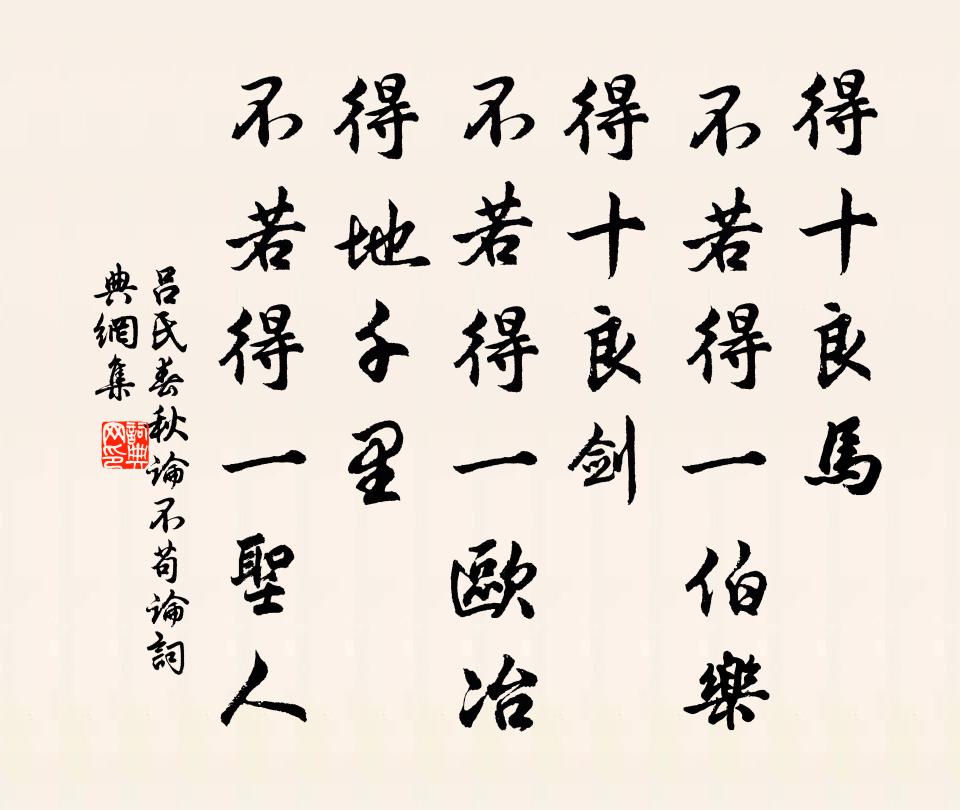 得十良馬
不若得一伯樂
得十良劍
不若得一歐冶
得地千里
不若得一聖人
呂氏春秋論不苟論詞
典網集
詞典
网印